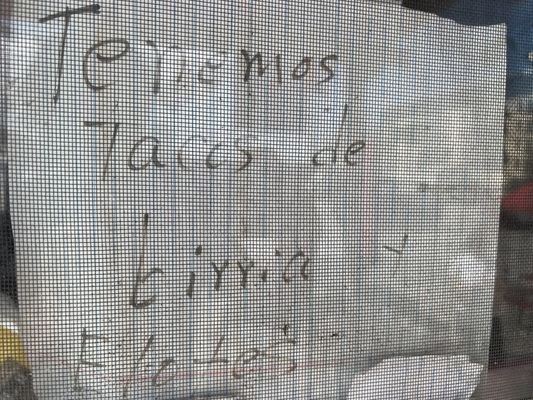 Tenemos
Tacos de
birria y
Elotes